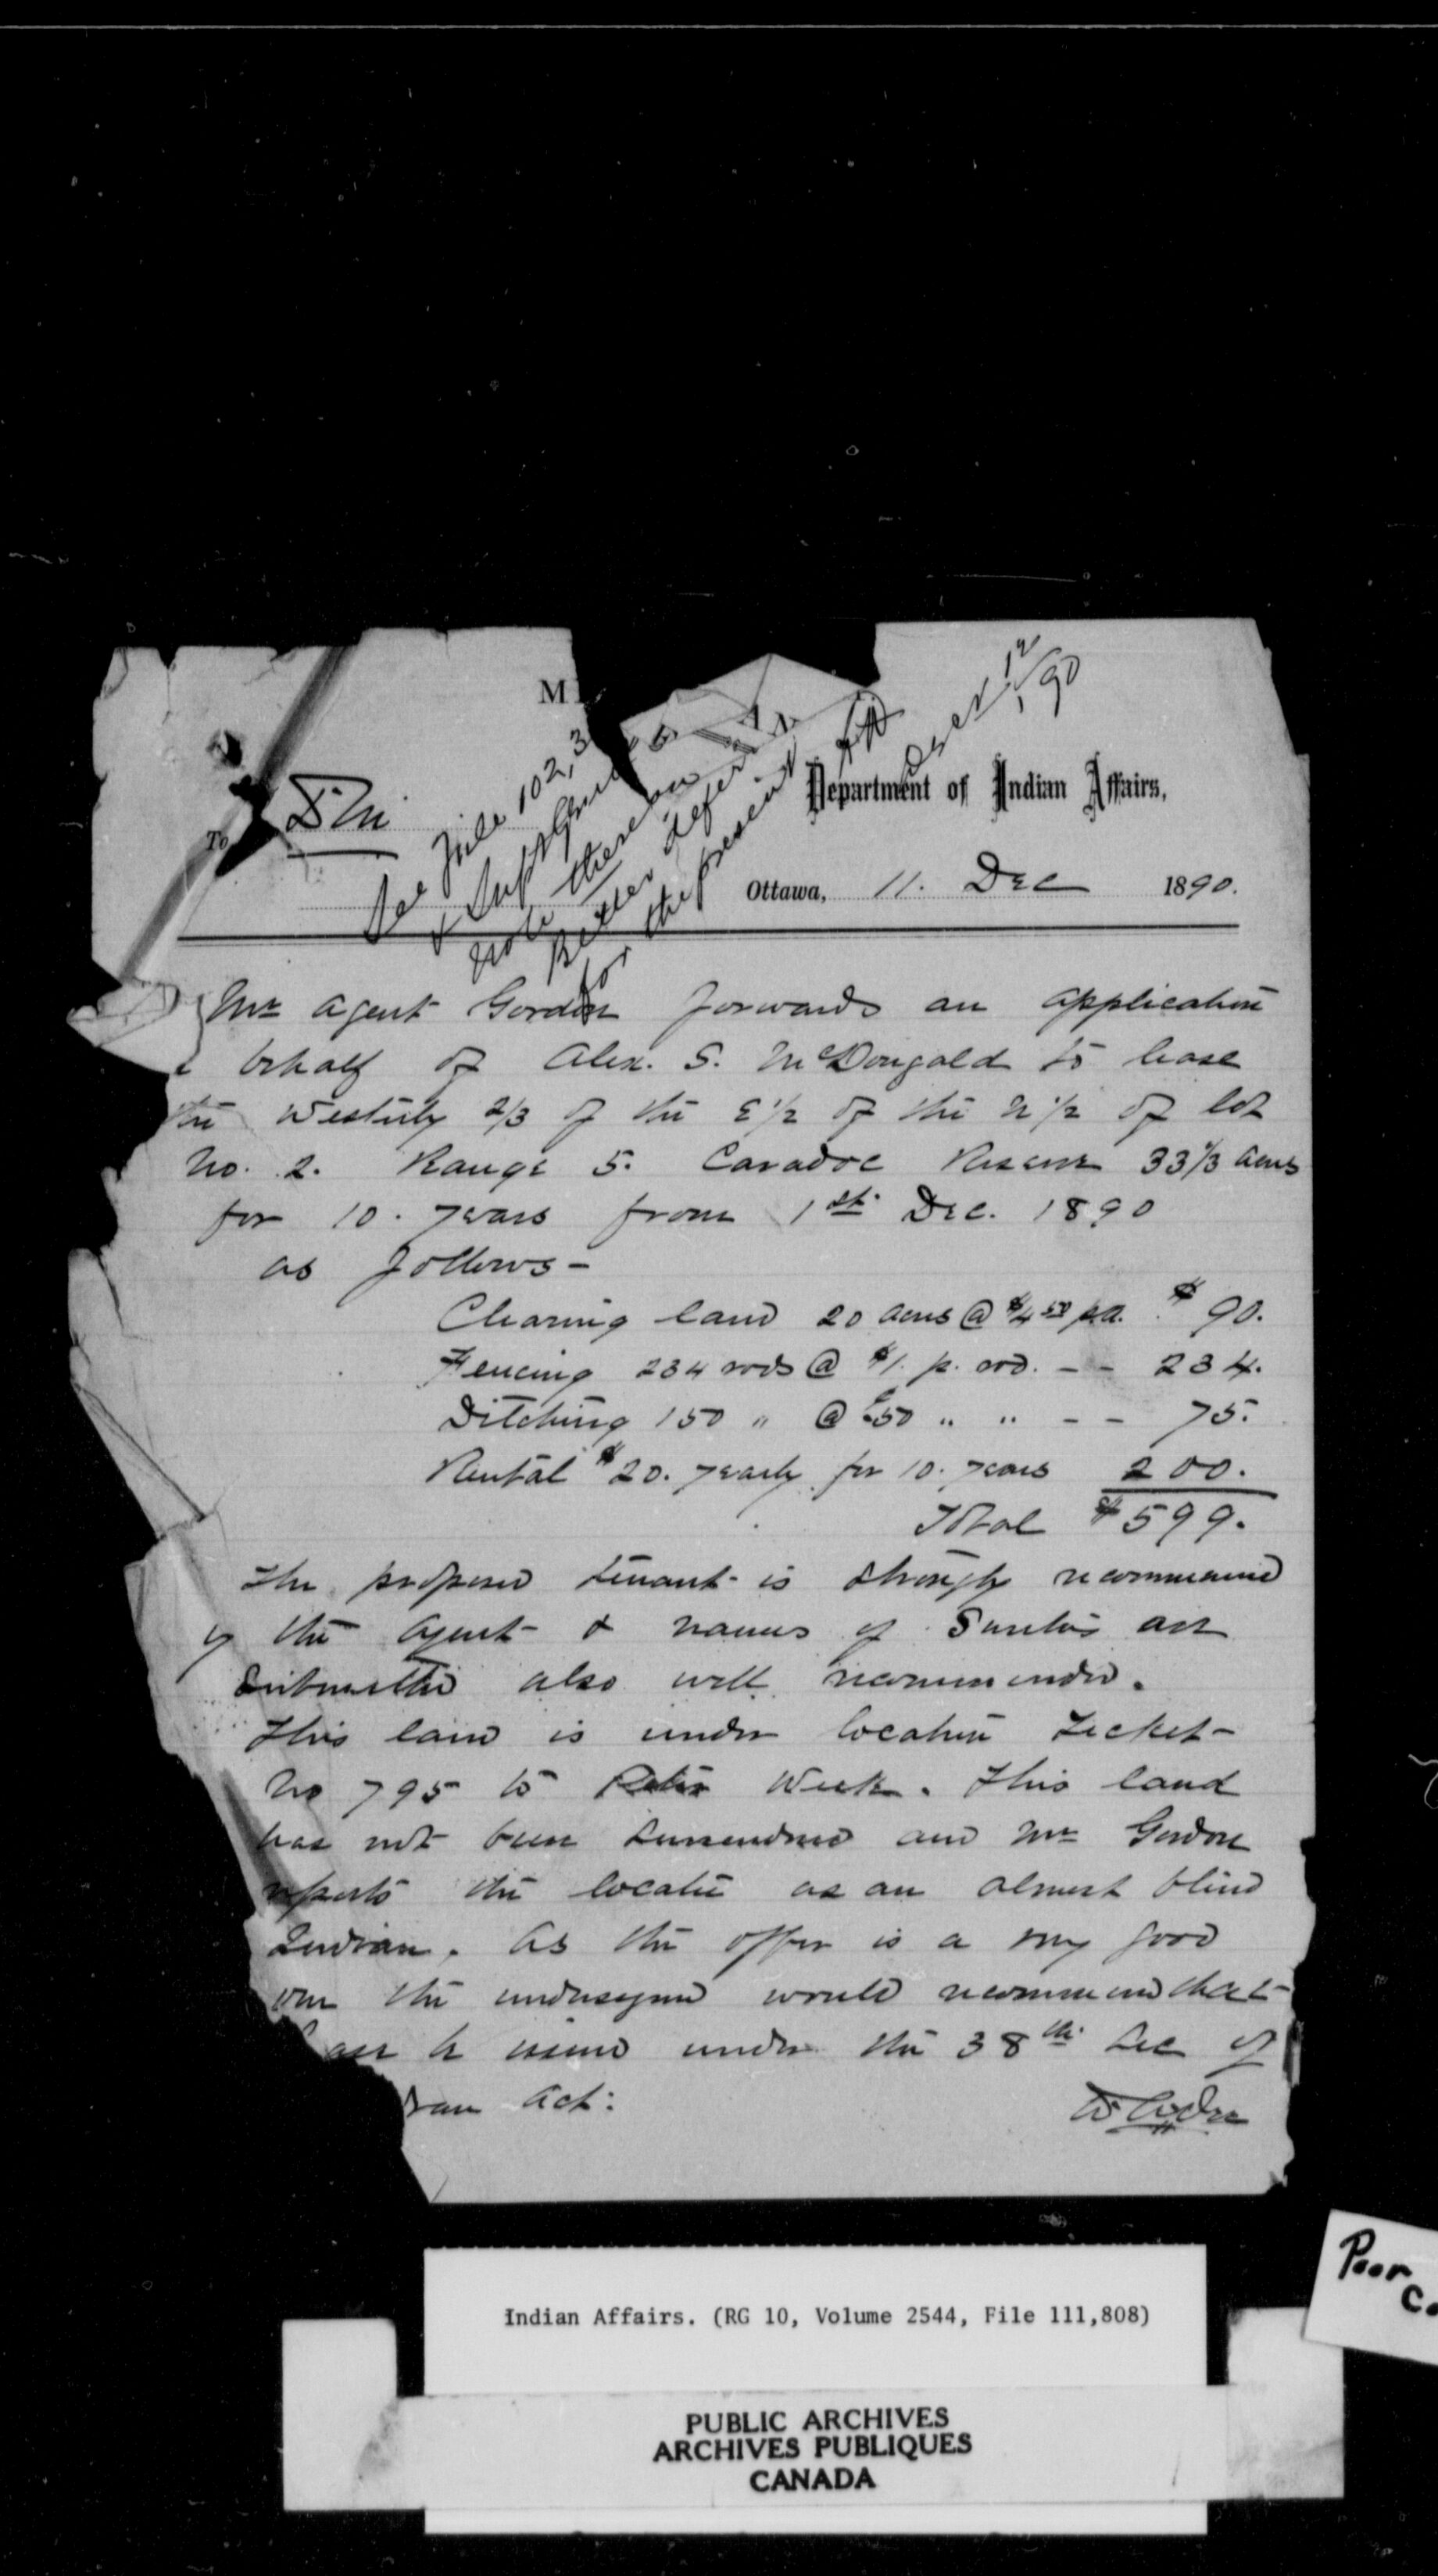 Department of Indian Affairs,
To
D M
Ottawa, 11. Dec 1890.
See File 102,3
& Supt Genl's
note thereon
Better defer
for the present
Decr 12/90
Mr Agent Gordon forwards an application
behalf of Alex. S. McDougald to lease
the Westerly 2/3 of the E 1/2 of the N 1/2 of lot
No. 2. Range 5. Caradoc Reserve 33 1/3 acres
for 10. years from 1st Dec. 1890
as follows -
Clearing land 20 acres @ $4.50 p.a. $90.
Fencing 234 rods @ $1. p. rod. - - 234.
Ditching 150 " @ .50 " " - - 75.
Rental $20. yearly for 10. years 200.
Total $599.
The proposed tenant is strongly recommended
by the Agent & names of Sureties are
submitted also well recommended.
This land is under location ticket
No 795 to Week. This land
has not been surrendered and Mr Gordon
reports the locatee as an almost blind
Indian. As the offer is a very good
one the undersigned would recommend that
be issued under the 38th Sec of
Act.
Indian Affairs. (RG 10, Volume 2544, File 111,808)
PUBLIC ARCHIVES
ARCHIVES PUBLIQUES
CANADA
Poor
C.